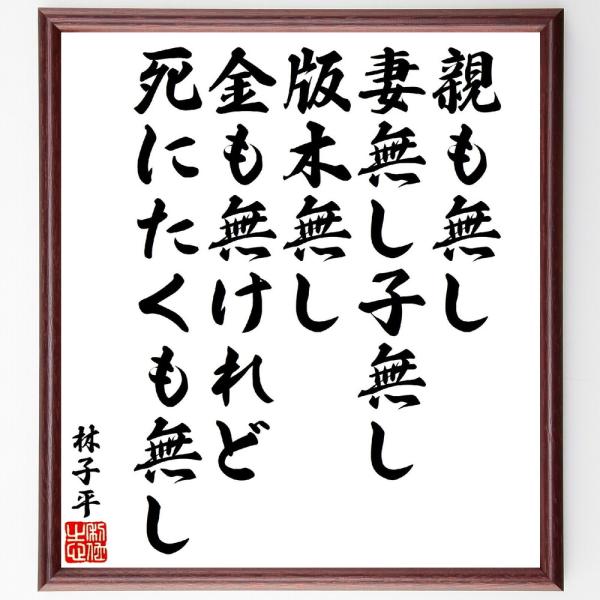 親も無し
妻無し子無し
版木無し
金も無けれど
死にたくも無し
林子平